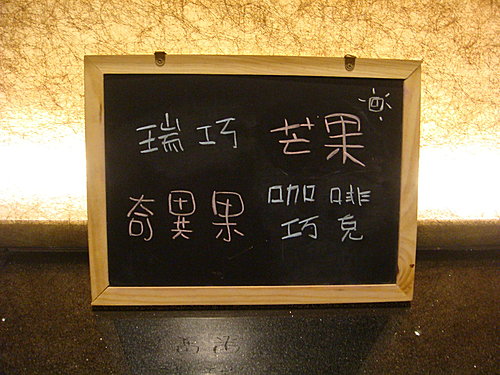 瑞巧 芒果
奇異果 咖啡
巧克